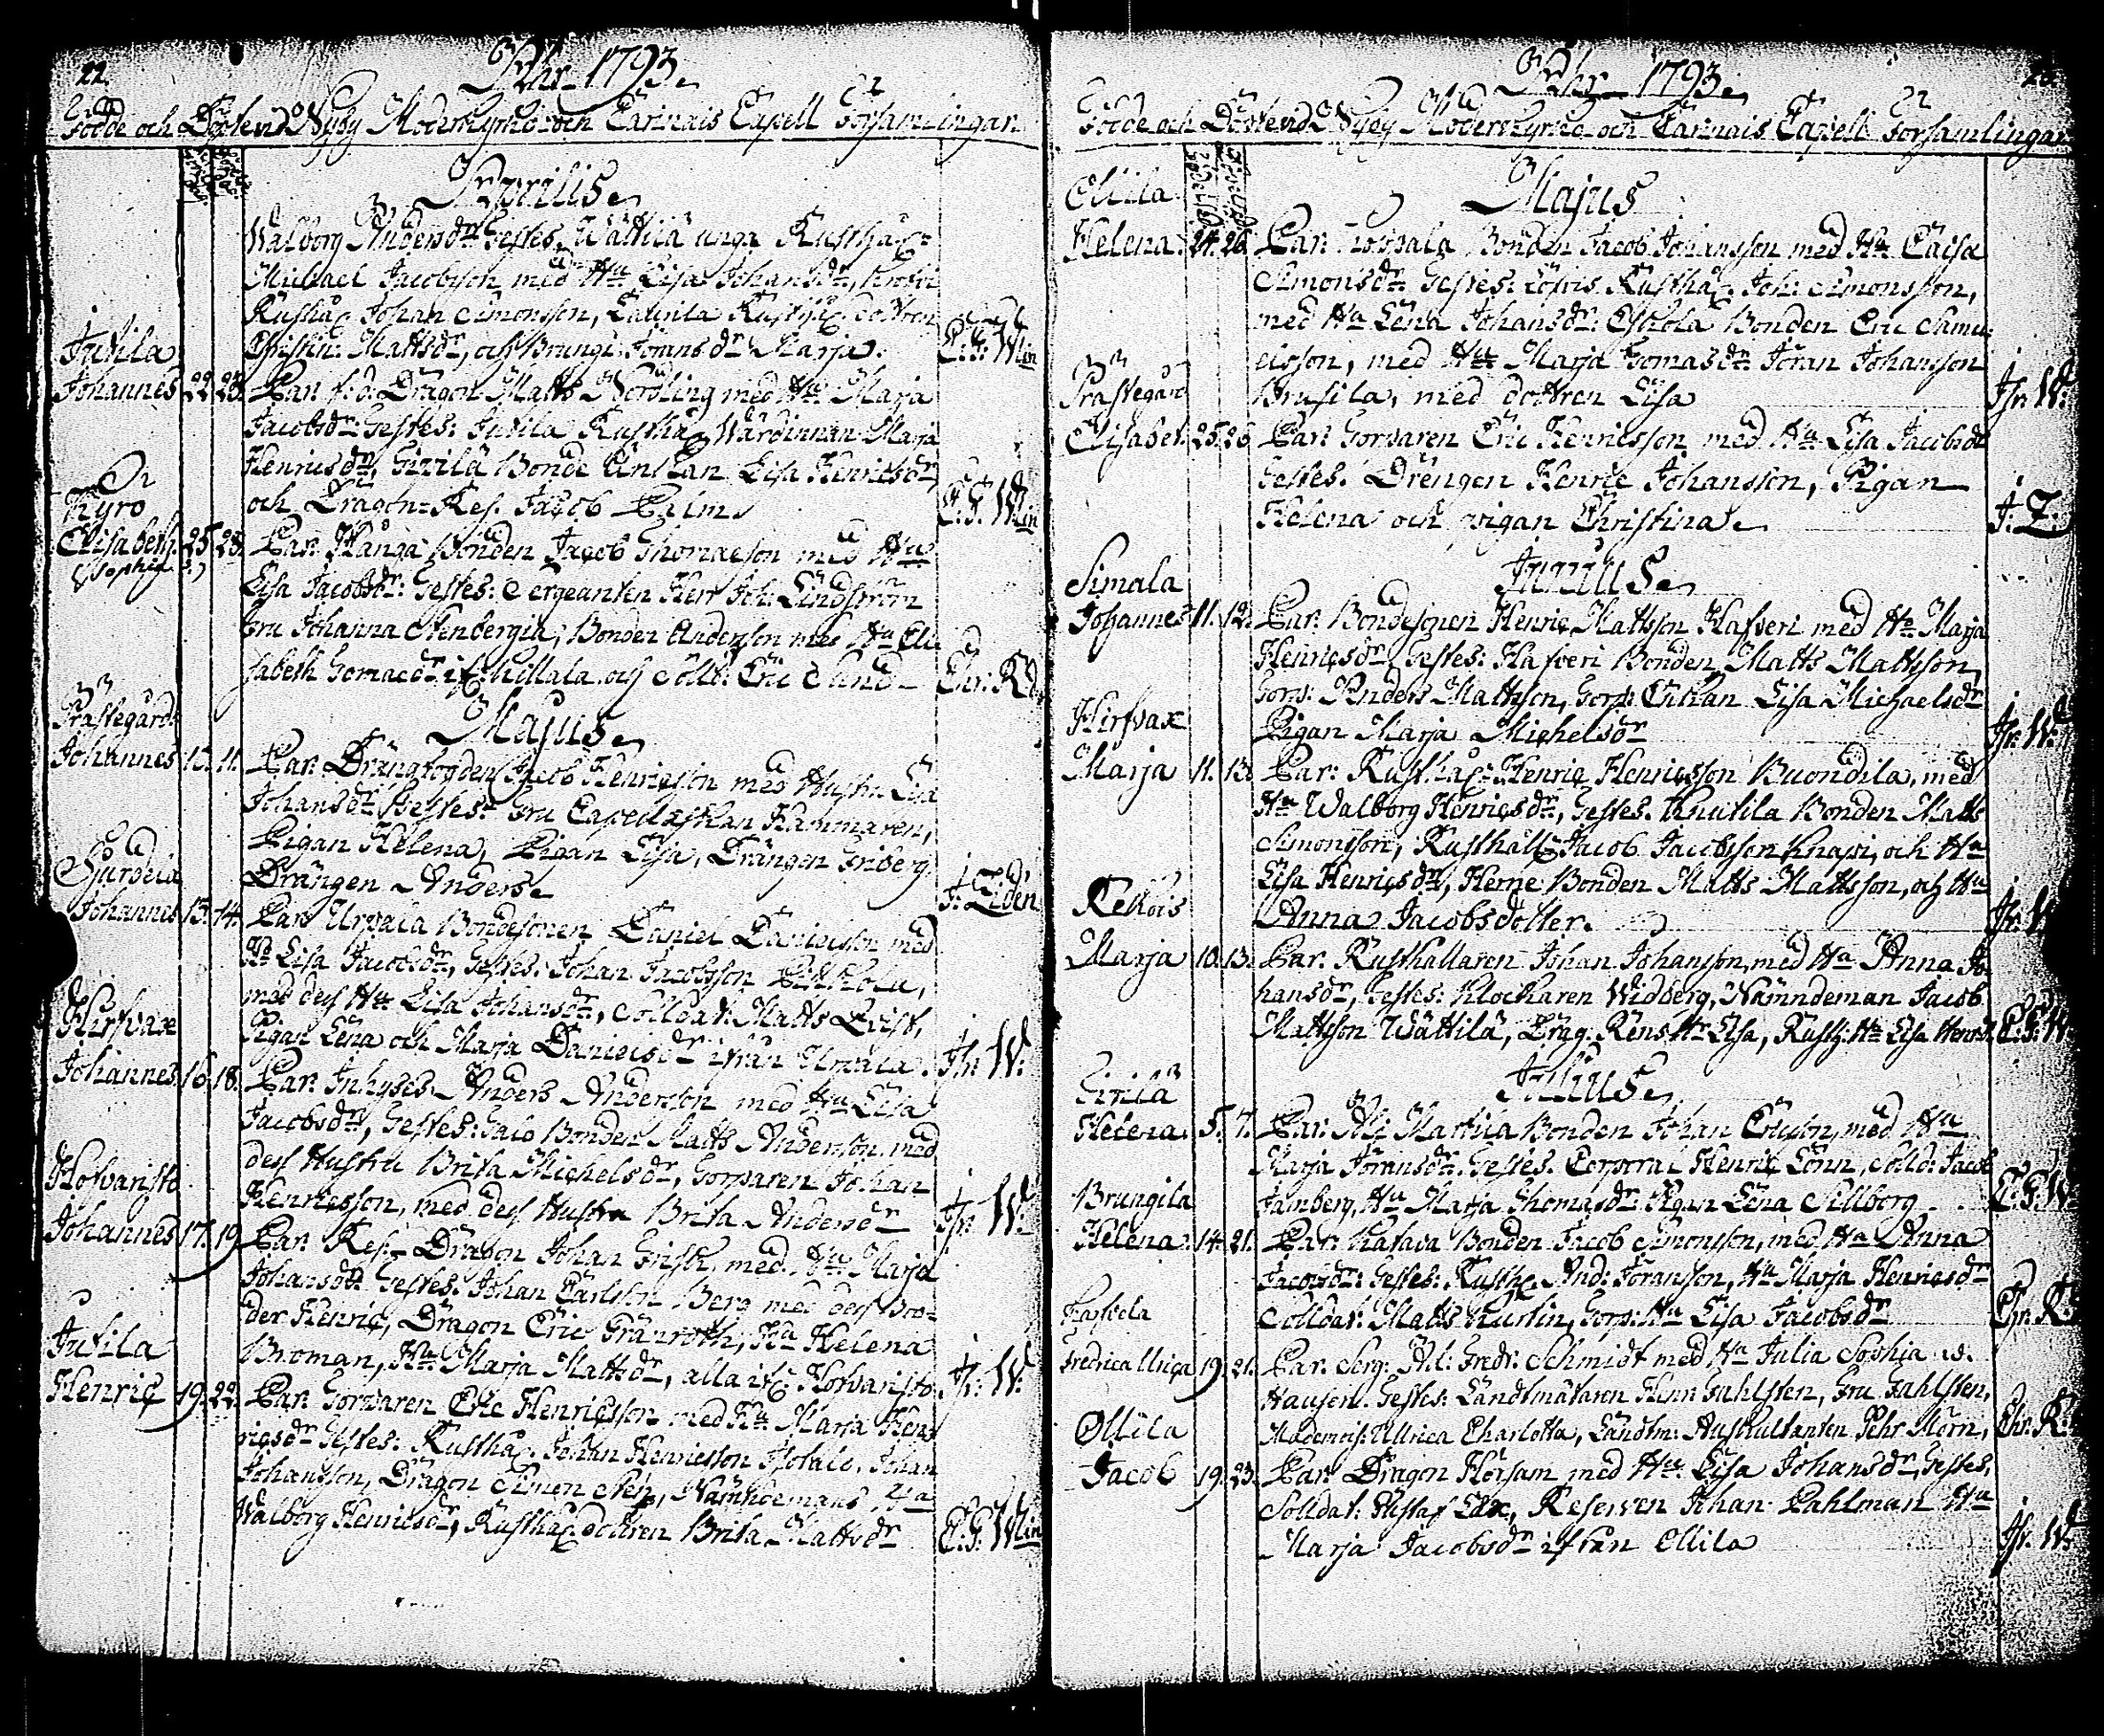 22.
Åhr 1793.
Födde och Döpte vid Nyby Moderkyrko och Carinais Capell Församlingar
Aprilis.
Walborg Andersdr. Testes, Wättilä unga Rusthåll:
Michael Jacobsson med Hu Lisa Johansdr,
Rusthåll Johan Simonsson, Rusthåll dottren
Jutila
Christin: Mattsdr, och Brungi: Jöransdr Marja. C: G: Wlin
Johannes 22 23. Par. f. d. Dragon Matts Nordling med Hu Marja
Jacobsdr: Testes: Jutila Rusthåll Wärdinnan Marja
Henricsdr, Bonde Enkan Lisa Henricsdr
Kyro
och Dragon-Res. Jacob Palm. C. G. Wlin
Elisabeth. 25. 28. Par: Kånga Bonden Jacob Thomasson med Hu
(Sophia)
Lisa Jacobsdr: Testes: Sergeanten Herr Joh: Lindström
Fru Johanna Stenbergia; Bonden Andersson med Hu Eli
sabeth Tomasdr if. Killala och Solld: Eric Sund
Majus.
Prästegård
Johannes 10. 11. Par: Drängfogden Jacob Henricsson med Hustru Lisa
Johansdr Testes: Fru Capellaskan Hammaren,
Pigan Helena, Pigan Lisa, Drängen Friberg.
Drängen Anders. J: Liden
Johannes 13. 14. Par: Urpala Bondesonen Daniel Danielsson med
Hu Lisa Jacobsdr, Testes: Johan Jacobsson Pikkola,
med dess Hu Lisa Johansdr, Solldat: Matts Qvist,
Pigan Lena och Marja Danielsdr ifrån Urpala. Jsr: W:
Hirfvax
Johannes 16. 18. Par: Inhyses Anders Andersson med Hu Lisa
Jacobsdr, Testes: Bonden Matts Andersson med
dess Hustru Brita Michelsdr, Torparen Johan
Henricsson, med dess Hustru Brita Andersdr Jsr: W:
Hofvansto
Johannes 17. 19. Par: Res. Dragon Johan Frisk med Hu Marja
Johansdr Testes: Johan Carlsson Berg med dess Bro-
der Henric, Dragon Eric Granroth, Hu Helena
Broman, Hu Marja Mattsdr, alla if: Hofvansto. Jsr: W:
Jutila
Henric 19. 22. Par: Torparen Eric Henricsson med Hu Marja Hen
ricsdr Testes: Rusthåll Johan Henricsson Isotalo, Johan
Johansson, Dragon Simon Nämndemans Hu
Walborg Henricsdr, Rusthåll dottren Brita Mattsdr C: G: Wlin
23.
Åhr 1793.
Födde och Döpte vid Nyby Moderkyrko och Carinais Capell Församlingar
Majus
Ollila
Helena. 24. 26. Par: Bonden Jacob Johansson med Hu Caisa
Simonsdr Testes: Rusthåll Joh: Simonsson,
med Hu Lena Johansdr: Eskola Bonden Eric Samu
elsson, med Hu Marja Tomasdr Jöran Johansson
Krusila, med dottren Lisa Jsr: W:
Prästegård
Elisabet. 25. 26 Par: Torparen Eric Henricsson med Hu Lisa Jacobsdr
Testes: Drängen Henric Johansson, Pigan
Helena och pigan Christina. J: L:
Junius.
Simala
Johannes 11. 12. Par: Bondesonen Henric Mattsson Hafveri med Hu Marja
Henricsdr Testes: Hafveri Bonden Matts Mattsson,
Torp: Anders Mattsson, Torp: Enkan Lisa Michaelsdr
Pigan Marja Michelsdr Jsr: W:
Hirfvax
Marja 11. 13. Par: Rusthåll: Henric Henricsson Buondila, med
Hu Walborg Henricsdr, Testes. Knutila Bonden Matts
Simonsson, Rusthåll: Jacob Jacobsson Knapi, och Hu
Lisa Henricsdr, Herne Bonden Matts Mattsson, och Hu
Anna Jacobsdotter. Jsr: W
Rekois
Marja 10. 13. Par: Rusthållaren Johan Johansson, med Hu Anna Jo
hansdr, Testes: Klockaren Widberg, Nämndeman Jacob
Mattsson Wättilä, Drag. Rens Hu Lisa, Rusth: Hu Lisa Henrsd. C: G: W:
Julius.
Helena. 5. 7. Par: Ali Mattila Bonden Johan Ericsson, med Hu
Marja Jöransdr. Testes. Corporal Henric Lönn, Solld: Jacob
Jamberg, Hu Marja Thomasdr Pigan Lena Sillborg C: G: W:
Brungila
Helena. 14. 21. Par: Katava Bonden Jacob Simonsson, med Hu Anna
Jacobsdr: Testes: Rusthll And: Jöransson, Hu Marja Henricsdr
Solldat: Matts Kurlin, Torp: Hu Lisa Jacobsdr
Fredrica Ulrica 19. 21. Par: Serg: Ad: Fredr: Schmidt med Hu Julia Sophia
Hausen. Testes: Landtmätaren Herr Gahlsten, Fru Gahlsten,
Mademois: Ullrica Charlotta, Landtm: Auskultanten Pehr Mörn,
Ollila
Jacob 19. 23. Par: Dragon Hörsam med Hu Lisa Johansdr, Testes.
Solldat: Gustaf Lax, Reserven Johan Pahlman Hu
Marja Jacobsdr ifrån Ollila Jsr: W: